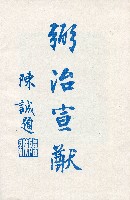 弼治宣猷
陳誠題